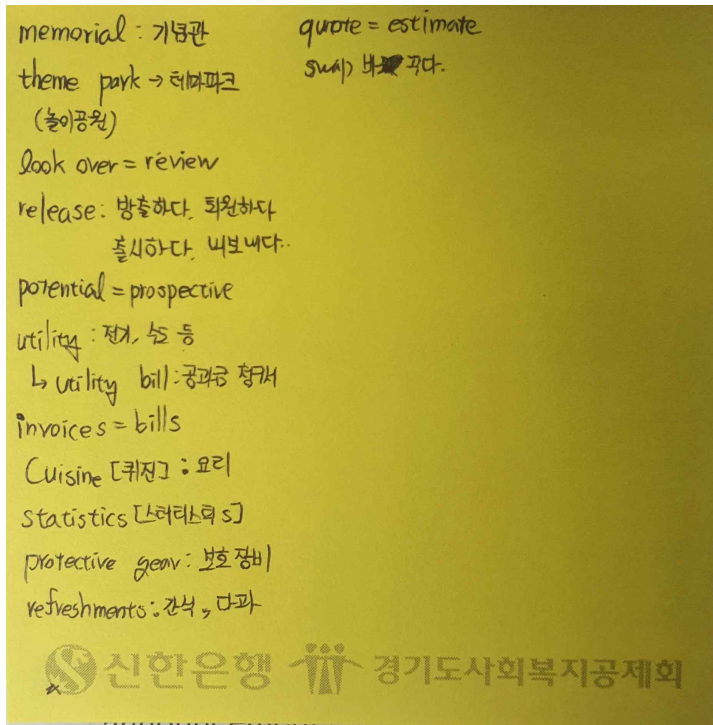 memorial : 기념관
theme park → 테마파크
(놀이공원)
look over = review
release : 방출하다. 퇴원하다
출시하다. 내보내다..
potential = prospective
utility : 전기, 수도 등
↳ utility bill : 공과금 청구서
invoices = bills
Cuisine [퀴진] : 요리
statistics [스터티스틱s]
protective gear : 보호장비
refreshments : 간식, 다과
quote = estimate
swap 바꾸다.
신한은행 경기도사회복지공제회